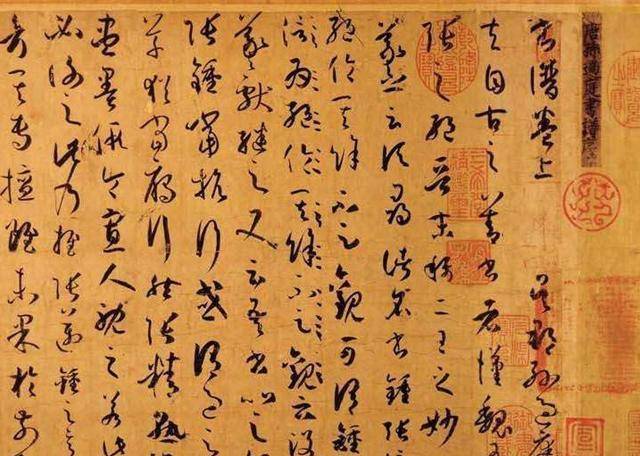 唐孫過庭書譜
書譜卷上 吳郡孫過庭
夫自古之善書者漢魏
張之絕晉末稱二王之妙
羲之云頃尋諸名書鍾張信
絕倫其餘不足觀可謂鍾
信為絕倫其餘不足觀云沒
羲獻繼之又云吾書比之
張鍾當抗行或謂過之
草猶當鴈行然張精熟
盡墨假令寡人耽之若此
必謝之此乃推張邁鍾之意
考其專擅雖未果於前